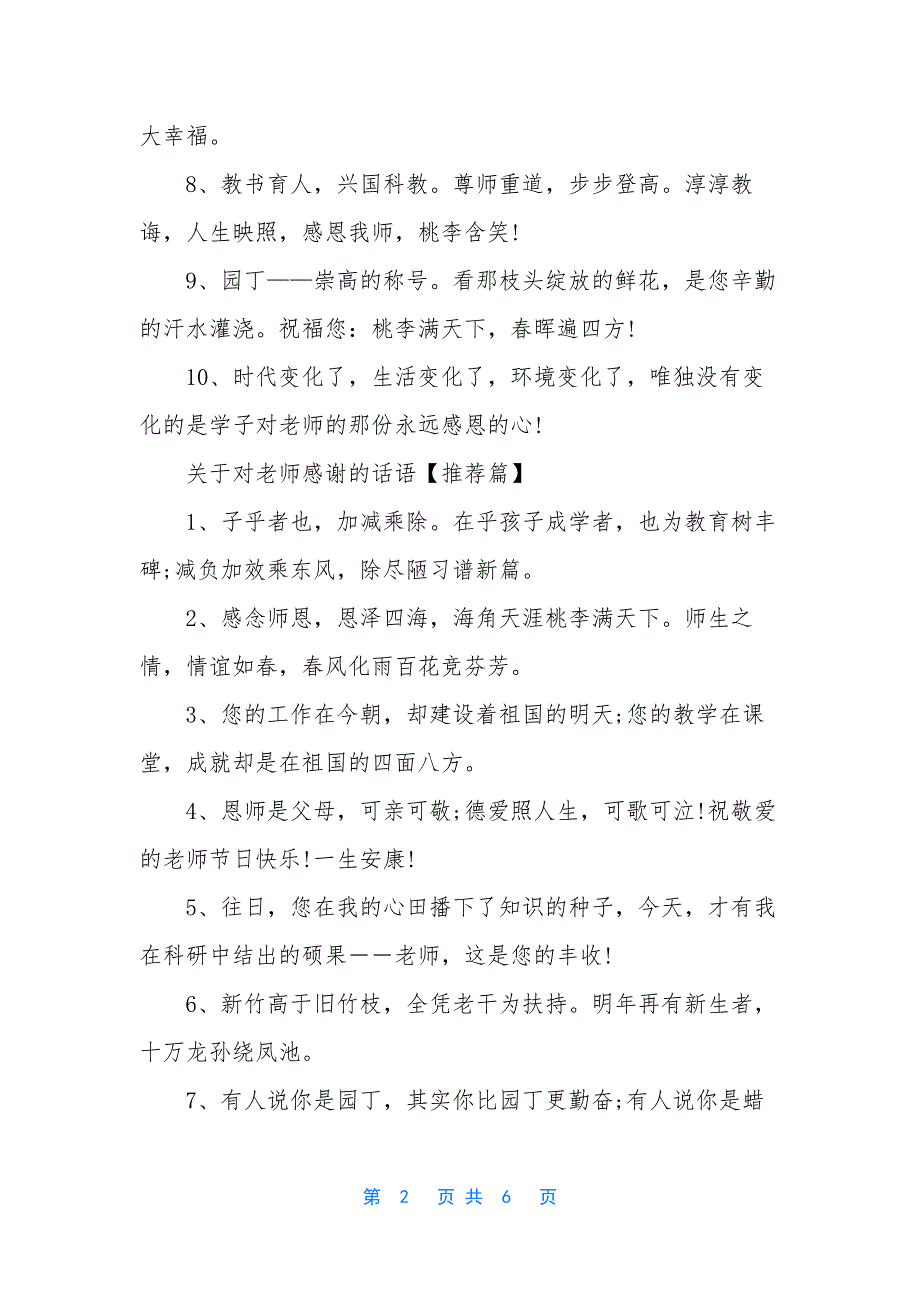 大幸福。
8、教书育人，兴国科教。尊师重道，步步登高。淳淳教
诲，人生映照，感恩我师，桃李含笑!
9、园丁——崇高的称号。看那枝头绽放的鲜花，是您辛勤
的汗水灌浇。祝福您：桃李满天下，春晖遍四方!
10、时代变化了，生活变化了，环境变化了，唯独没有变
化的是学子对老师的那份永远感恩的心!
关于对老师感谢的话语【推荐篇】
1、子乎者也，加减乘除。在乎孩子成学者，也为教育树丰
碑;减负加效乘东风，除尽陋习谱新篇。
2、感念师恩，恩泽四海，海角天涯桃李满天下。师生之
情，情谊如春，春风化雨百花竞芬芳。
3、您的工作在今朝，却建设着祖国的明天;您的教学在课
堂，成就却是在祖国的四面八方。
4、恩师是父母，可亲可敬;德爱照人生，可歌可泣!祝敬爱
的老师节日快乐!一生安康!
5、往日，您在我的心田播下了知识的种子，今天，才有我
在科研中结出的硕果－－老师，这是您的丰收!
6、新竹高于旧竹枝，全凭老干为扶持。明年再有新生者，
十万龙孙绕凤池。
7、有人说你是园丁，其实你比园丁更勤奋;有人说你是蜡
第 2 页 共 6 页